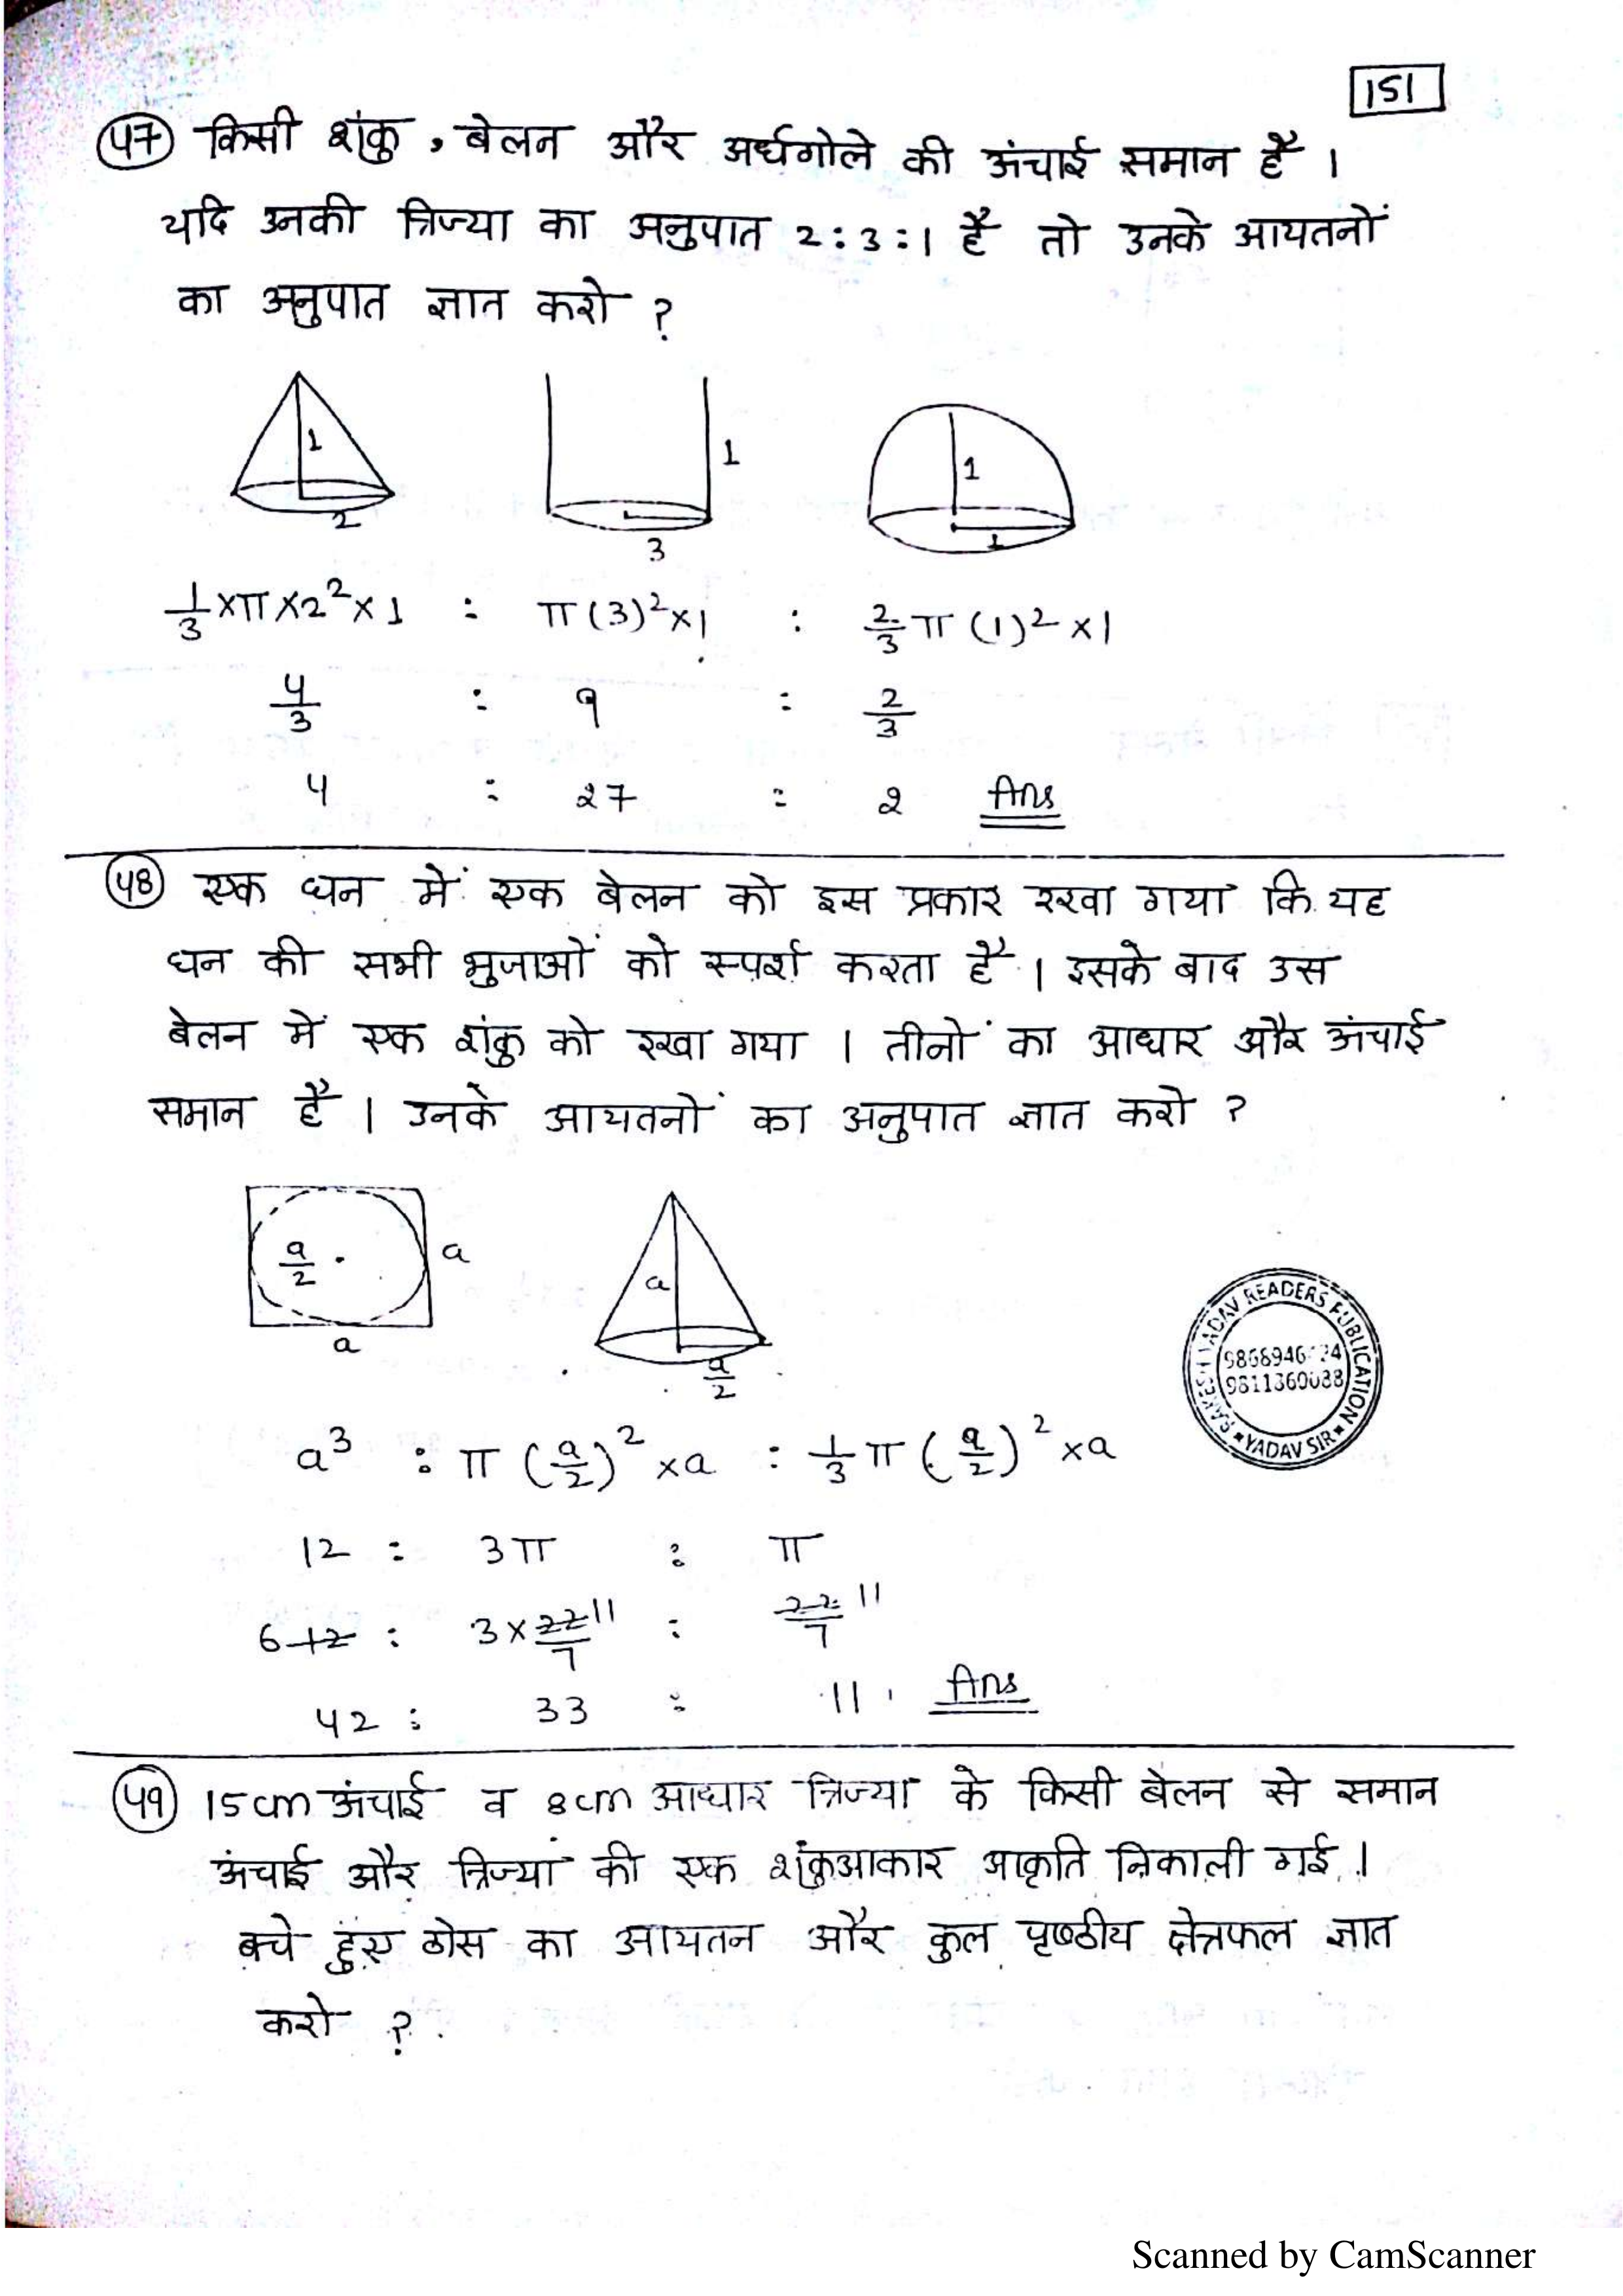 151
47 किसी शंकु, बेलन और अर्धगोले की ऊंचाई समान है ।
यदि उनकी त्रिज्या का अनुपात 2:3:1 है तो उनके आयतनों
का अनुपात ज्ञात करो ?
1 2
1 3
1 1
1/3 × π × 2² × 1 : π(3)² × 1 : 2/3 π (1)² × 1
4/3 : 9 : 2/3
4 : 27 : 2 Ans
48 एक घन में एक बेलन को इस प्रकार रखा गया कि यह
घन की सभी भुजाओं को स्पर्श करता है । इसके बाद उस
बेलन में एक शंकु को रखा गया । तीनों का आधार और ऊंचाई
समान है । उनके आयतनों का अनुपात ज्ञात करो ?
a/2 a a
a a/2
a³ : π (a/2)² × a : 1/3 π (a/2)² × a
12 : 3π : π
6 12 : 3 × 22/7 11 : 22/7 11
42 : 33 : 11 Ans
YADAV READERS PUBLICATION
YADAV SIR
49 15cm ऊंचाई व 8cm आधार त्रिज्या के किसी बेलन से समान
ऊंचाई और त्रिज्या की एक शंकुआकार आकृति निकाली गई ।
बचे हुए ठोस का आयतन और कुल पृष्ठीय क्षेत्रफल ज्ञात
करो ?
Scanned by CamScanner